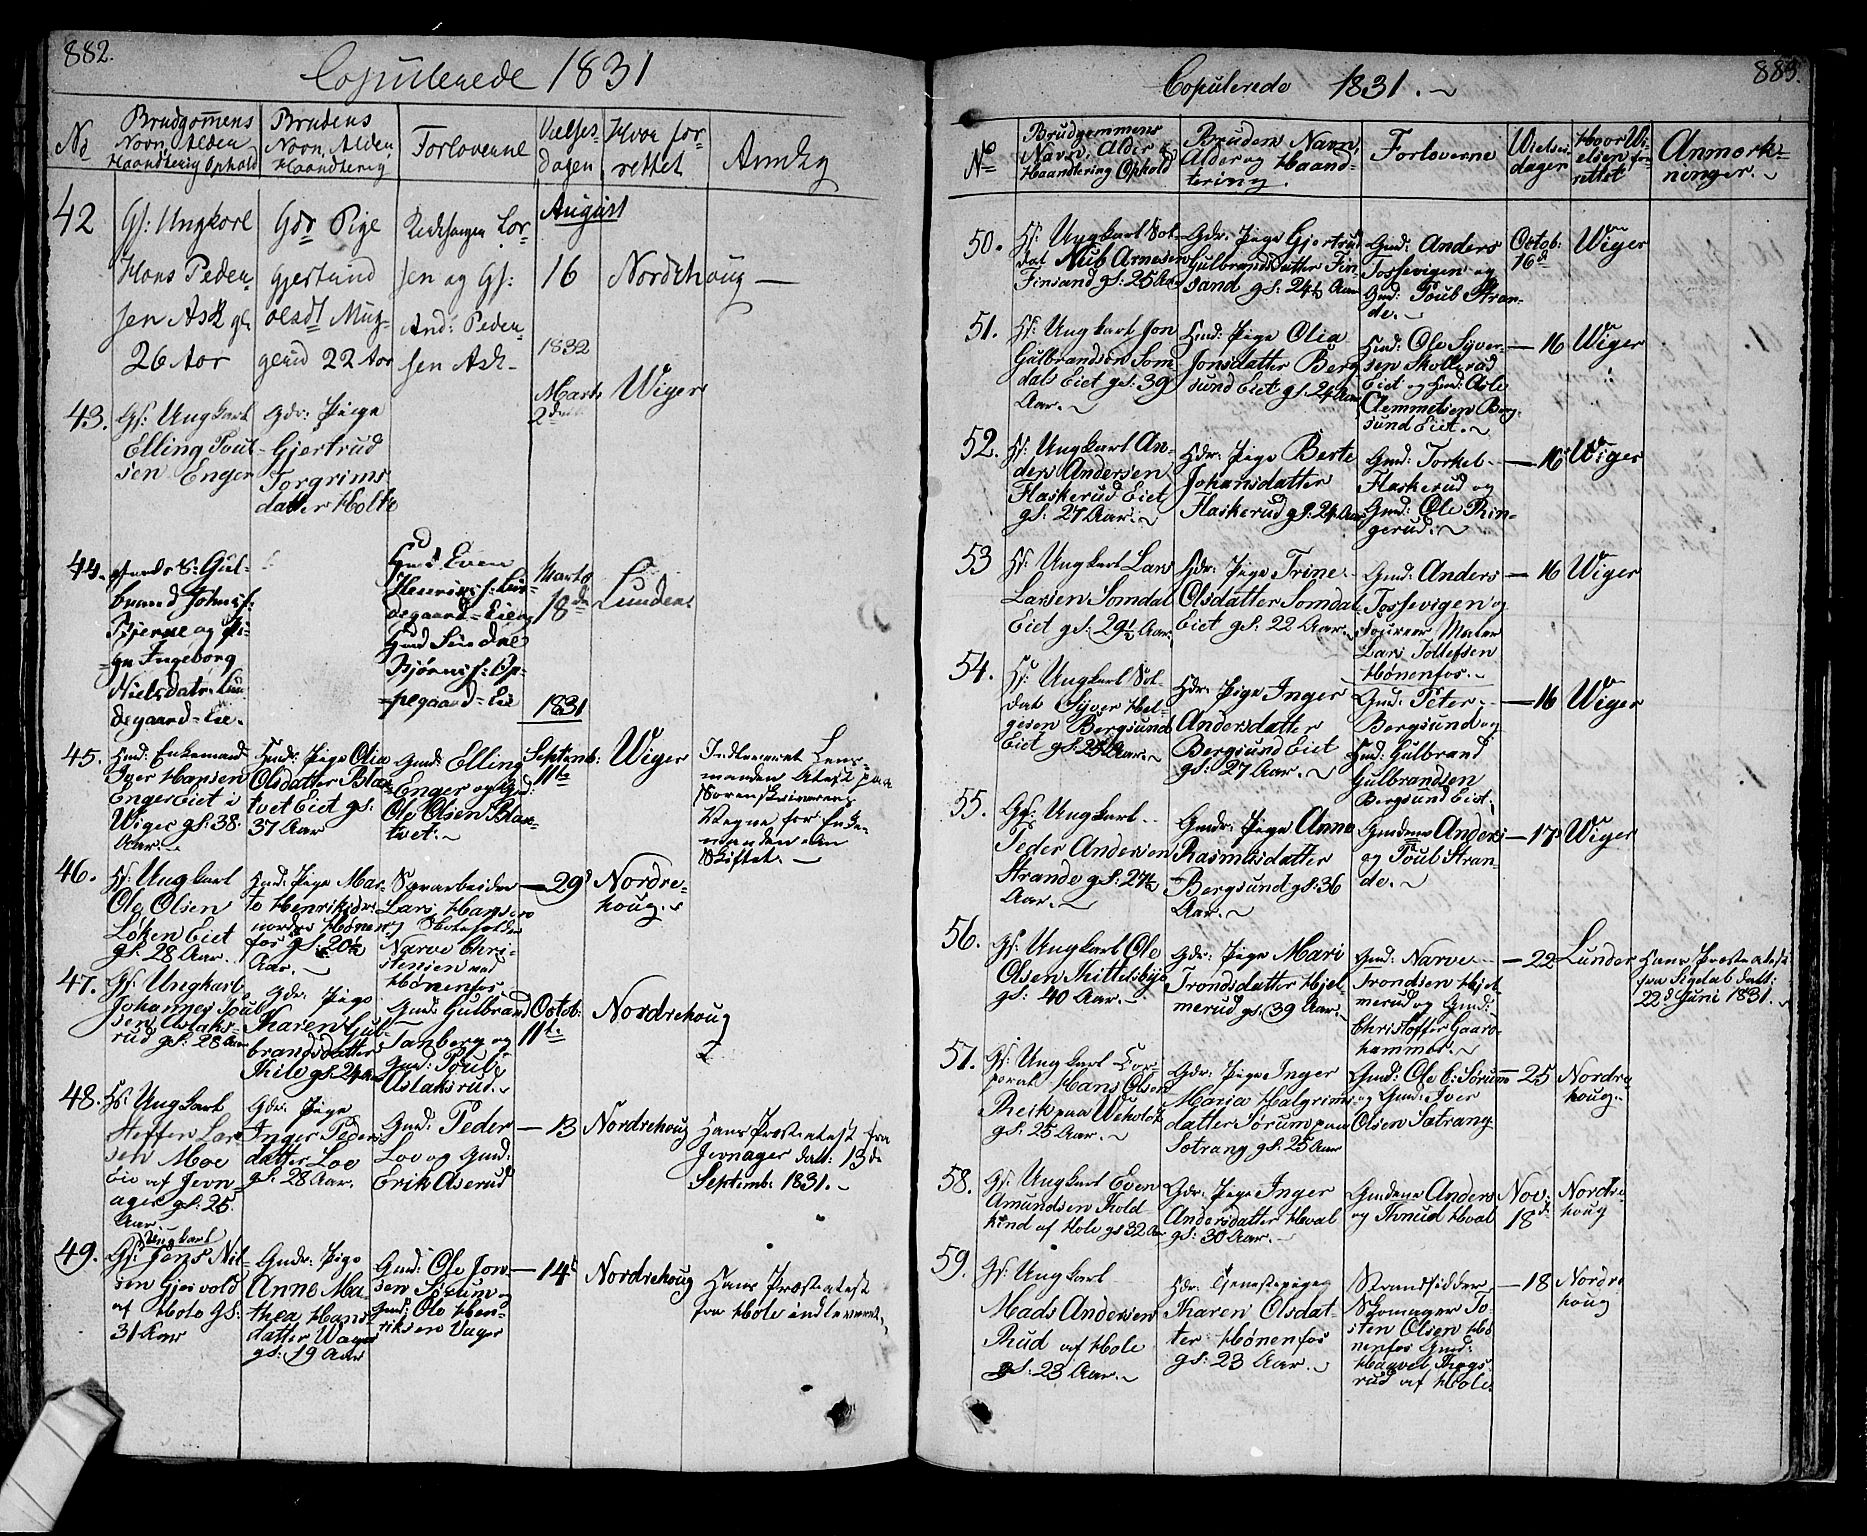 882.
Copulerede 1831
No
Brudgommens
Navn, Alder
Haandtering Ophold
Brudens
Navn, Alder
Haandtering
Forloverne
Vielses
Dagen
Hvor for-
rettet
Anmkg
42
Gs: Ungkarl
Hans Peder-
sen Ask gl.
26 Aar
Gdr Pige
Gjertrud
Olsdt Mug-
gerud 22 Aar
Lar-
sen og Gs:
And: Peder-
sen Ask-
August
16
Nordrehoug —
43.
Gs: Ungkarl
Elling Poul-
sen Enger
Gdr: Pige
Gjertrud
Torgrims
datter Holte
1832
Marts
2den
Wiger
44.
S: Gul-
brand Johnss:
Bjerne og Pi-
ge Ingeborg
Nielsdatr: Lun
degaard-Eie.
Hmd: Even
Henrichs: Lun-
degaard-Eie og
Hmd
Bjørns: Op-
pegaard-Eie
Marts
18de
Lunder
1831
45.
Hmd: Enkemand
Iver Hansen
Enger Eiet i
Wiger gs: 38.
Aar.
Hmdr: Pige Olia
Olsdatter Blax-
tvet Eiet gs:
37 Aar
Gmd: Elling
Enger og Gmd:
Ole Olsen Blax-
tvet.
Septemb:
11te
Wiger
Indleveret Lens-
mandens Atest paa
Sorenskriverens
Vegne for Enke-
manden om
Skiftet. —
46.
Hs: Ungkarl
Ole Olsen
Løken Eiet
gs: 28 Aar.
Hmd: Pige Mar-
te Henriksdr:
nordre Hønen-
fos gs: 20½
Aar. —
Savarbeider
Lars Hansen
og
Narve Chri-
stensen ved
Hønenfos.
— 29de
Nordre-
houg.
47.
Gs: Ungkarl
Johannes Poul
sen Aslaks-
rud gs: 28 Aar
Gdr: Pige
Karen Gul-
brandsdatter
Hile gs: 24 Aar
Gmd: Gulbrand
Tanberg og
Gmd: Poul
Aslaksrud.
Octob:
11te
Nordrehoug
48.
Hs: Ungkarl
Steffen Lar-
sen Moe
Eie af Jevn-
ager gs: 25
Aar.
Gdr: Pige
Inger Peders
datter Loe
gs: 28 Aar.
Gmd: Peder
Lo og Gmd:
Erik Aserud
— 13
Nordrehoug
Hans Præsteatest fra
Jevnager dat: 13de
Septemb: 1831. —
49.
Ungkarl
Gs: Jens Nil-
sen Gjesvold
af Hole gs:
31 Aar
Gmdr: Pige
Anne Ma-
thea Hans
datter Wager
gs: 19 Aar
Gmd: Ole Jon-
sen Sørum og
Gmd: Ole Hen-
riksen Vager
— 14de
Nordrehoug
Hans Præsteatest
fra Hole indleveret.
883.
Copulerede 1831.
No
Brudgommens
Navn, Alder &
Haandtering Ophold
Brudens Navn
Alder og Haand-
tering.
Forloverne
Vielses
dagen
Hvor Vi-
elsen for-
rettet
Anmærk-
ninger.
50.
Hs: Ungkarl Sol-
dat Nub Arnesen
Finsand gs: 25 Aar
Gdr: Pige Gjertrud
Gulbrandsdatter Fin-
sand gs: 24½ Aar
Gmd: Anders
Tossevigen og
Gmd: Poul Stran-
de.
Octob:
16de
Wiger
51.
Hs: Ungkarl Jon
Gulbrandsen Som
dals Eiet gs: 39
Aar.
Hmd: Pige Olia
Jonsdatter Berg
sund Eiet gs: 24 Aar
Hmd: Ole Syver-
sen Skollerud
Eiet og Hmd: Asle
Clemmetsen Berg-
sund Eiet.
— 16
Wiger
52.
Hs: Ungkarl An-
ders Andersen
Flaskerud Eiet
gs: 27 Aar.
Hdr: Pige Berte
Johansdatter
Flaskerud gs: 24 Aar
Gmd: Torkel
Flaskerud og
Gmd: Ole Rin-
gerud.
— 16
Wiger
53
Hs: Ungkarl Lars
Larsen Somdal
Eiet gs: 29½ Aar.
Hdr: Pige Trine
Olsdatter Somdal
Eiet gs: 22 Aar.
Gmd: Anders
Tossevigen og
Lars Tollefsen
Hønenfos.
— 16
Wiger
54.
Hs: Ungkarl Sol-
dat Syver Hel-
gesen Bergsund
Eiet gs: 25½ Aar.
Hdr: Pige Inger
Andersdatter
Bergsund Eiet
gs: 27 Aar.
Gmd: Peter
Bergsund og
Hmd: Gulbrand
Gulbrandsen
Bergsund Eiet.
— 16
Wiger
55.
Gs: Ungkarl
Peder Andersen
Strande gs: 27½
Aar.
Gmdr: Pige Anne
Rasmusdatter
Bergsund gs: 36
Aar.
Gmdene Anders
og Poul Stran-
de.
— 17de
Wiger
56.
Gs: Ungkarl Ole
Olsen Mittelsbye
gs: 40 Aar.
Gdr: Pige Mari
Trondsdatter Hjel
merud gs: 39 Aar.
Gmd: Narve
Trondsen Hjel
merud og Gmd:
Christoffer Gaars-
hammer.
— 22
Lunder
Hans Præsteatest
fra Sigdal dat:
22d Juni 1831.
57.
Gs: Ungkarl Cor-
poral Hans Olsen
Reik paa Weholdt
gs: 25 Aar.
Gdr: Pige Inger
Maria Halgrims
datter Sørum paa
Sotrang gs: 25 Aar
Gmd: Ole C: Sørum
og Gmd: Iver
Olsen Satrang
— 25
Nordre
houg.
58.
Gs: Ungkarl Even
Amundsen Kold
kind af Hole gs 32 Aar
Gdr: Pige Inger
Andersdatter Hval
gs: 30 Aar.
Gmdene Anders
og Knud Hval
Nov:
18de
Nordre
houg
59.
Gs: Ungkarl
Mads Andersen
Rud af Hole
gs: 23 Aar.
Hdr: Tjenestepige
Karen Olsdat-
ter Hønenfos
gs: 23 Aar.
Strandsidder
Skomager To-
sten Olsen Hø
nenfos Gmd:
Haavel Thogs
rud af Hole.
— 18
Nordre
houg